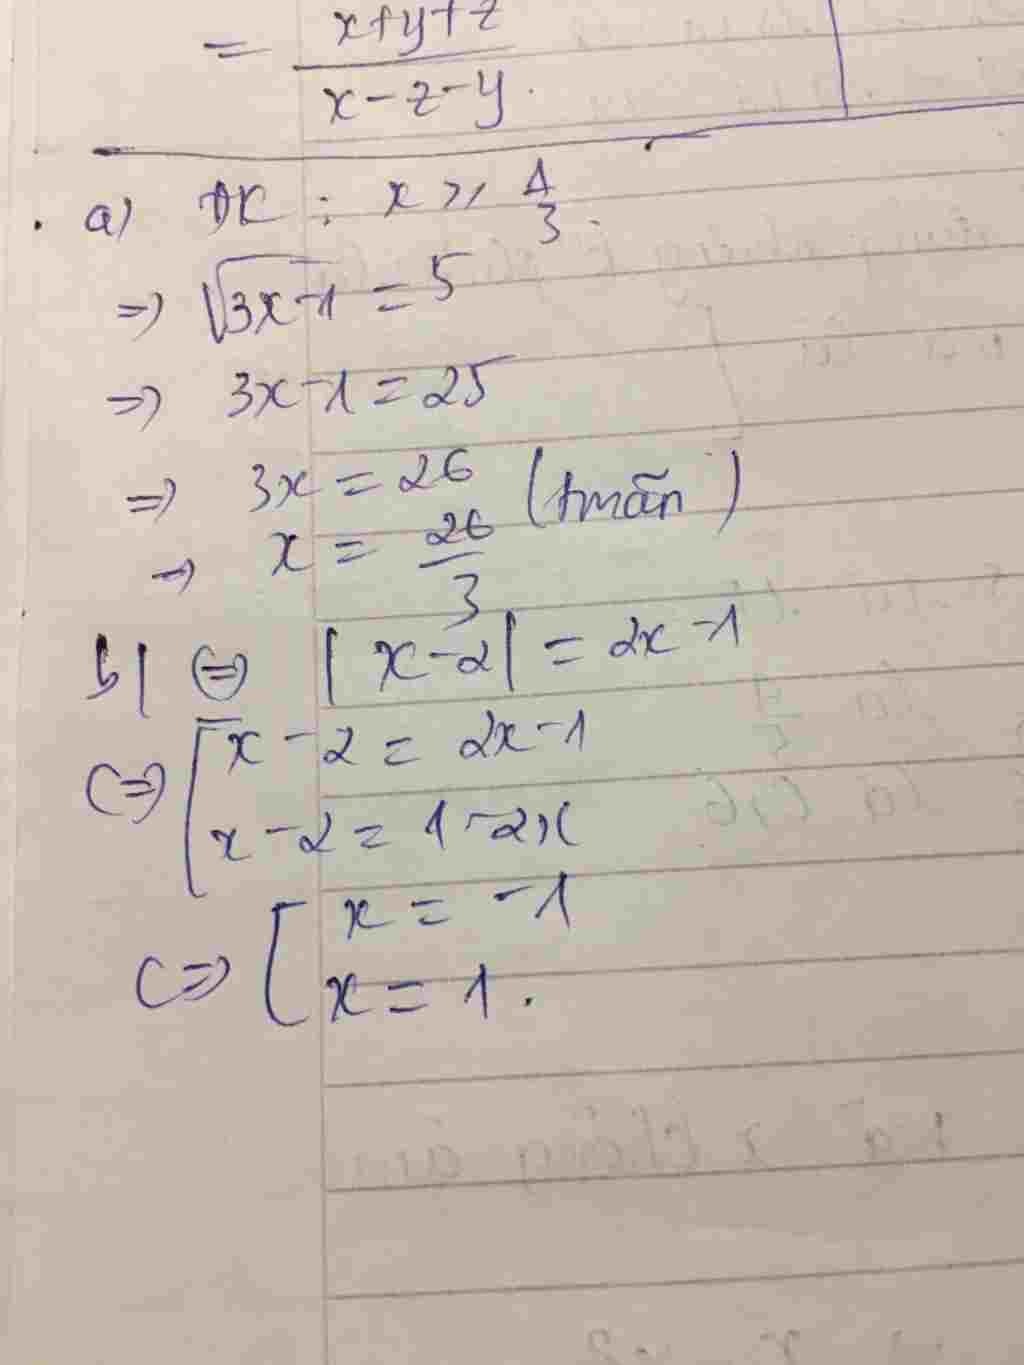 = x+y+z / x-z-y.
a) ĐK : x ≥ 1/3.
=> √3x-1 = 5
=> 3x-1 = 25
=> 3x = 26 (tmãn)
→ x = 26/3
b| <=> |x-2| = 2x-1
<=> [ x-2 = 2x-1
x-2 = 1-2x
<=> [ x = -1
x = 1.